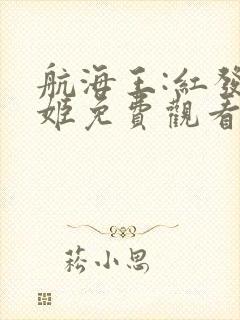 航海王:紅發
姬免費觀看
菘小思